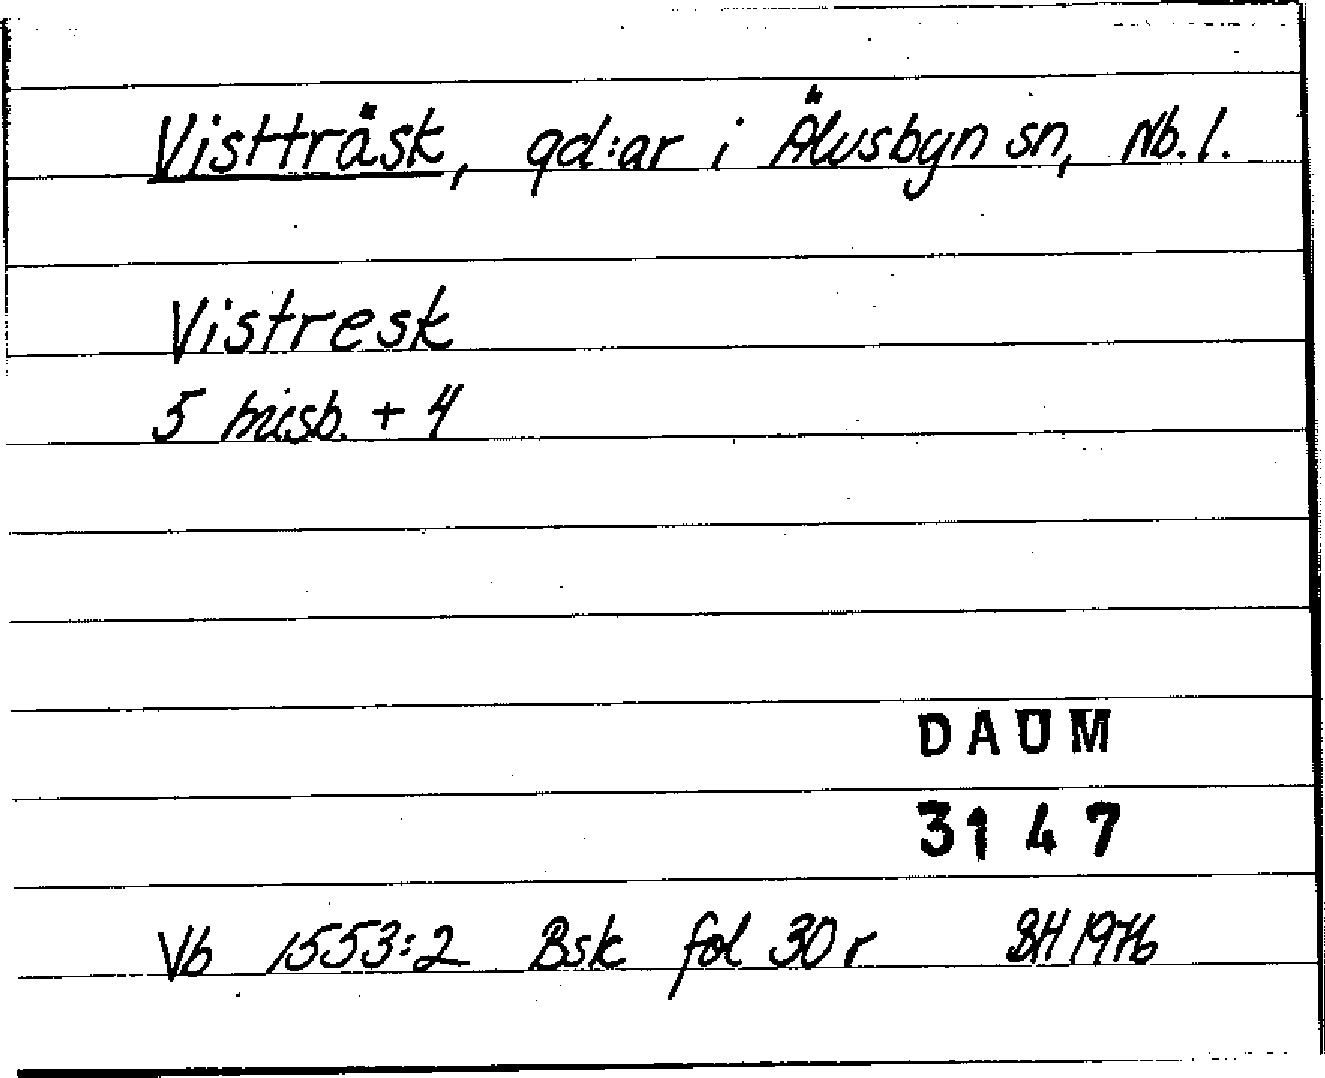 Vistträsk, gd:ar i Älvsbyn sn, Nb. l.
Vistresk
5 + 4
DAUM
3147
Vb 1553:2 Bsk fol 30 r SH 1976